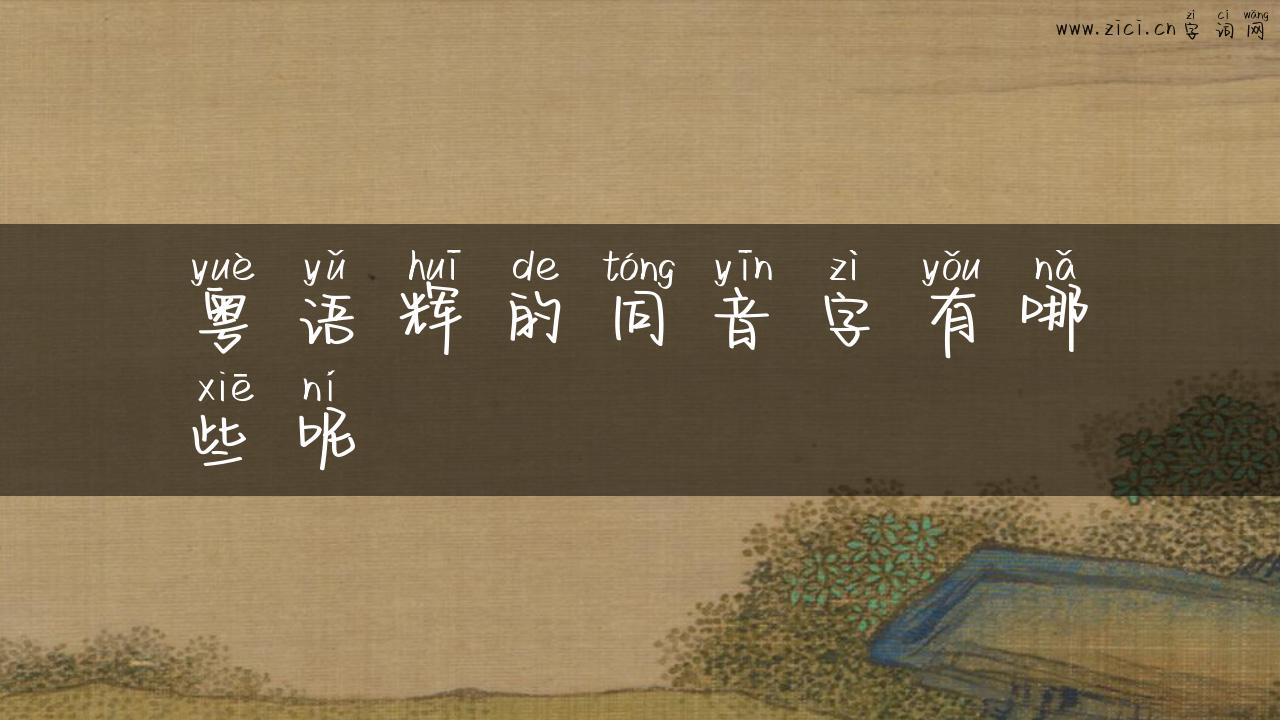 zì cí wǎng
www.zici.cn 字 词 网
yuè yǔ huī de tóng yīn zì yǒu nǎ
粤 语 辉 的 同 音 字 有 哪
xiē ní
些 呢